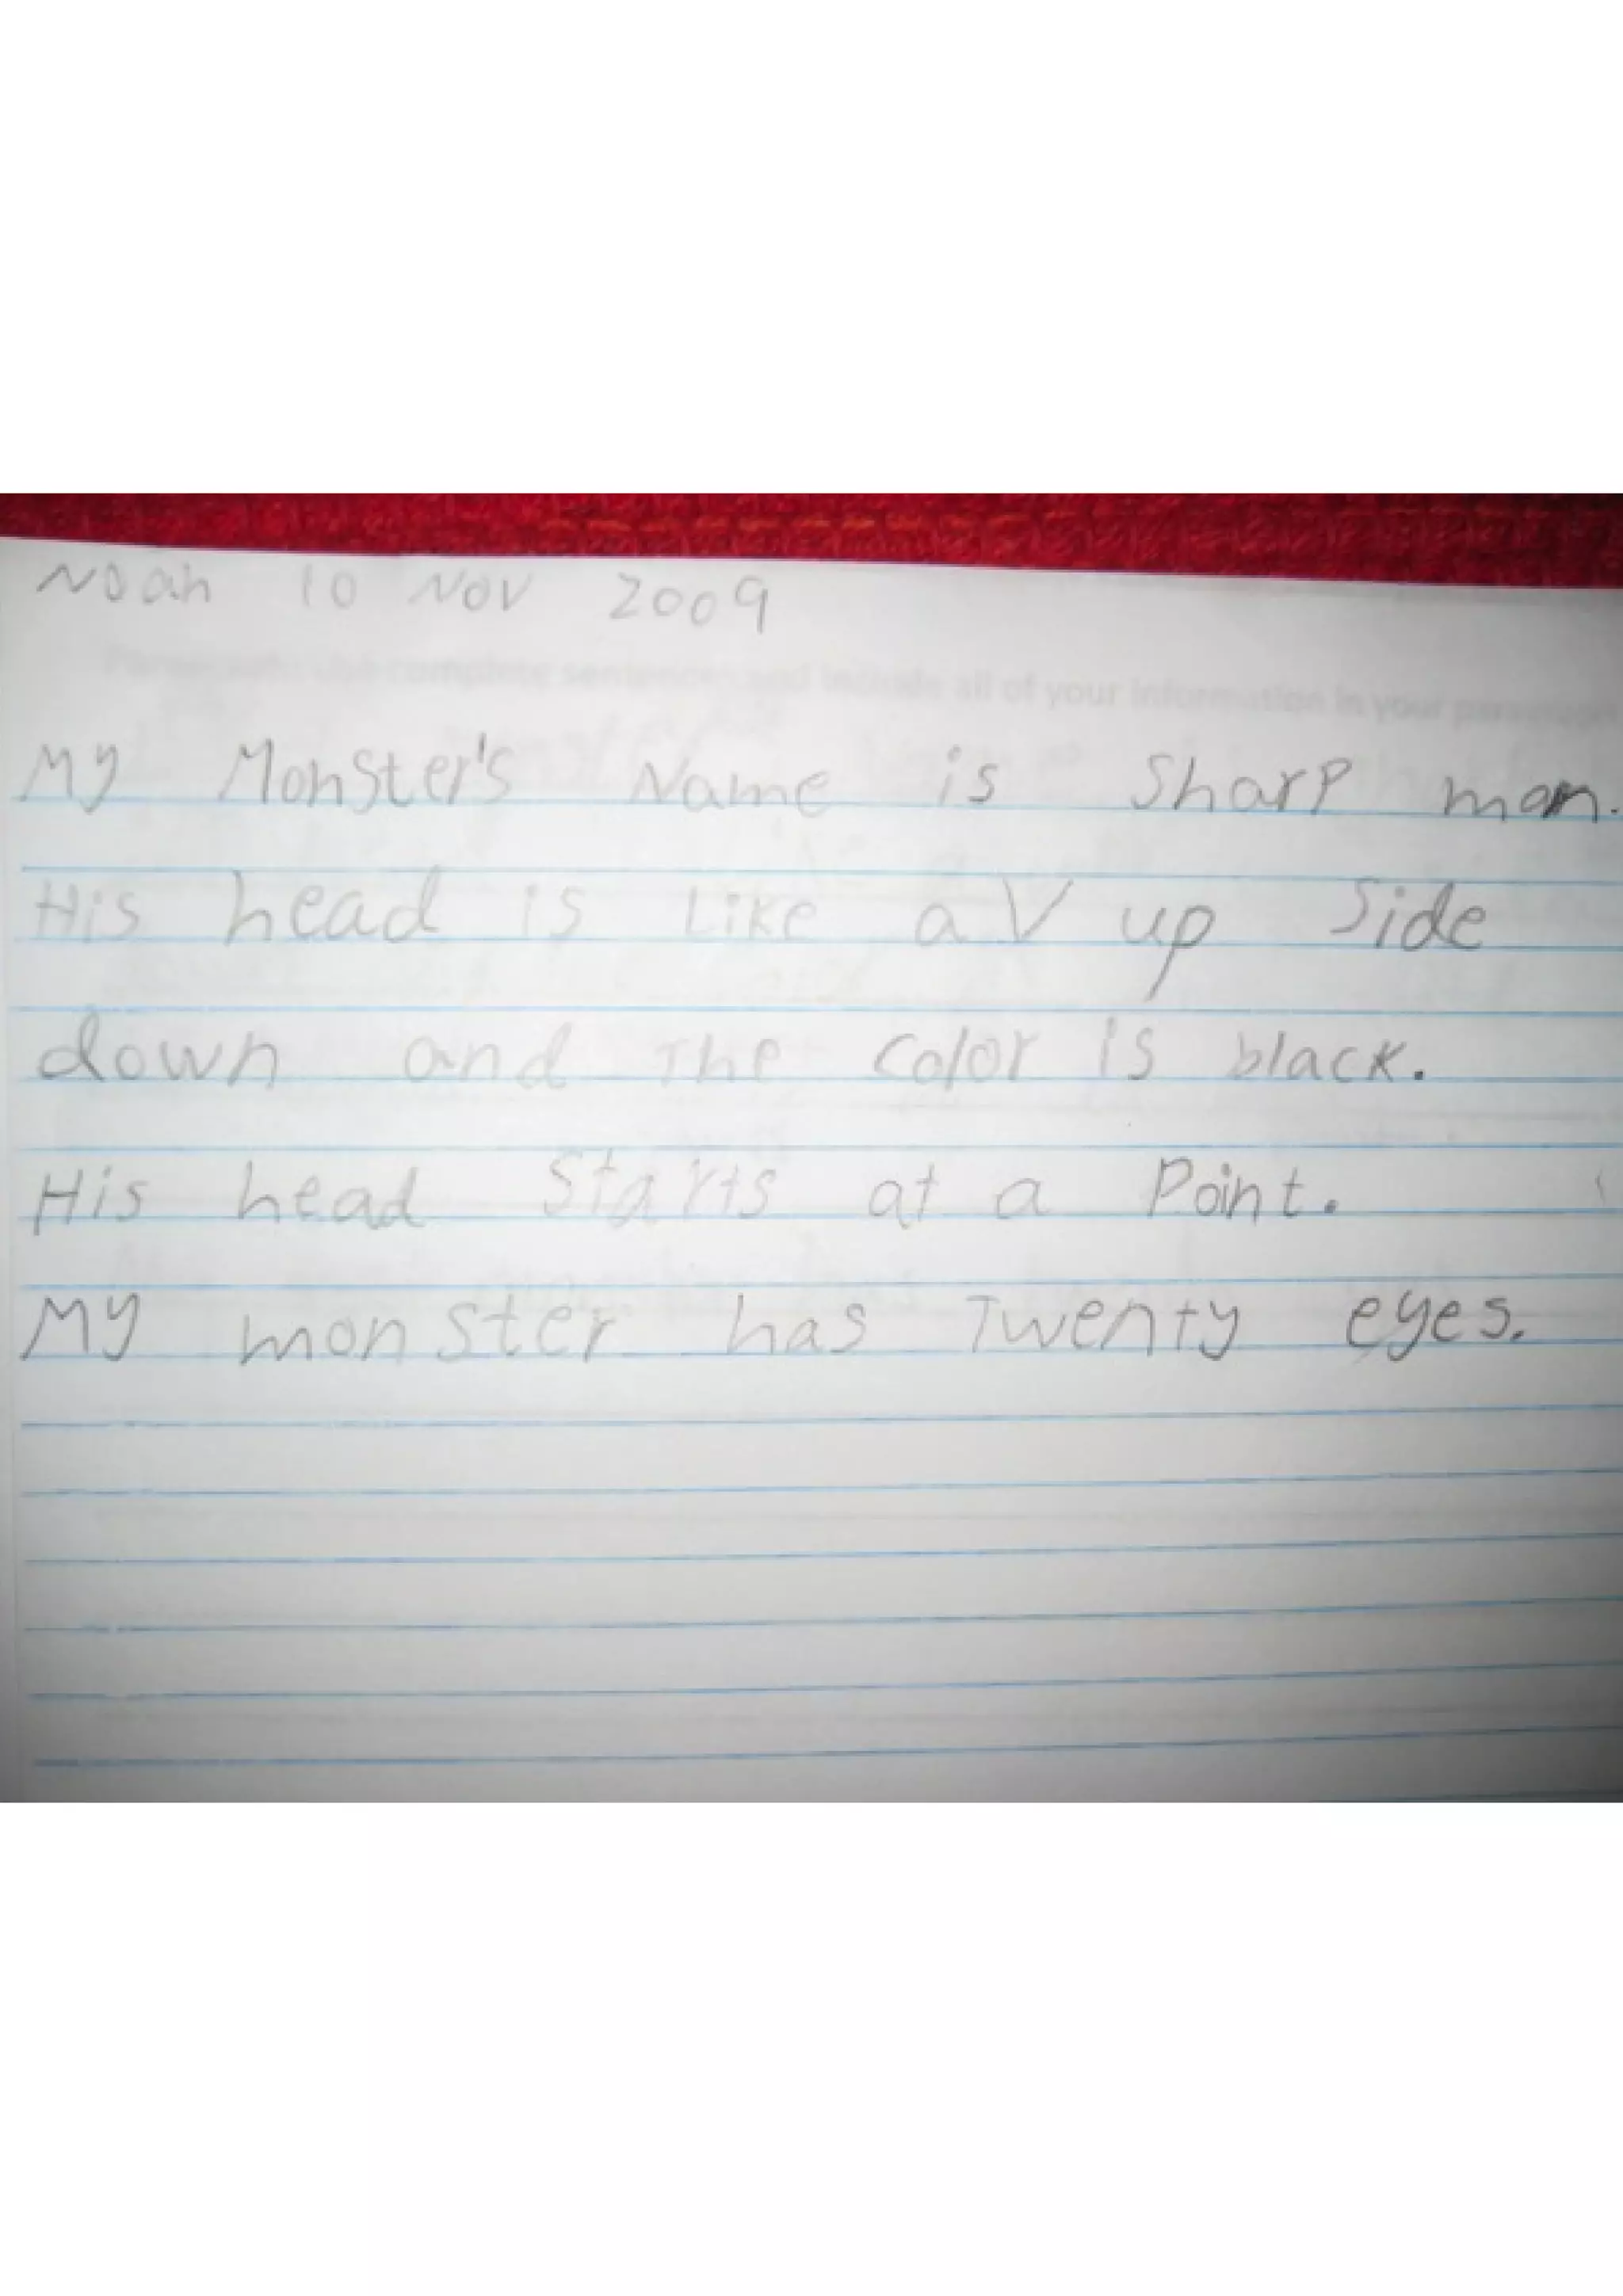 Noah 10 Nov 2009
complete sentences and include all of your information in your
My Monster's Name is Sharp man.
His head is Like a V up Side
down and The color is black.
His head Starts at a Point.
My monster has Twenty eyes.